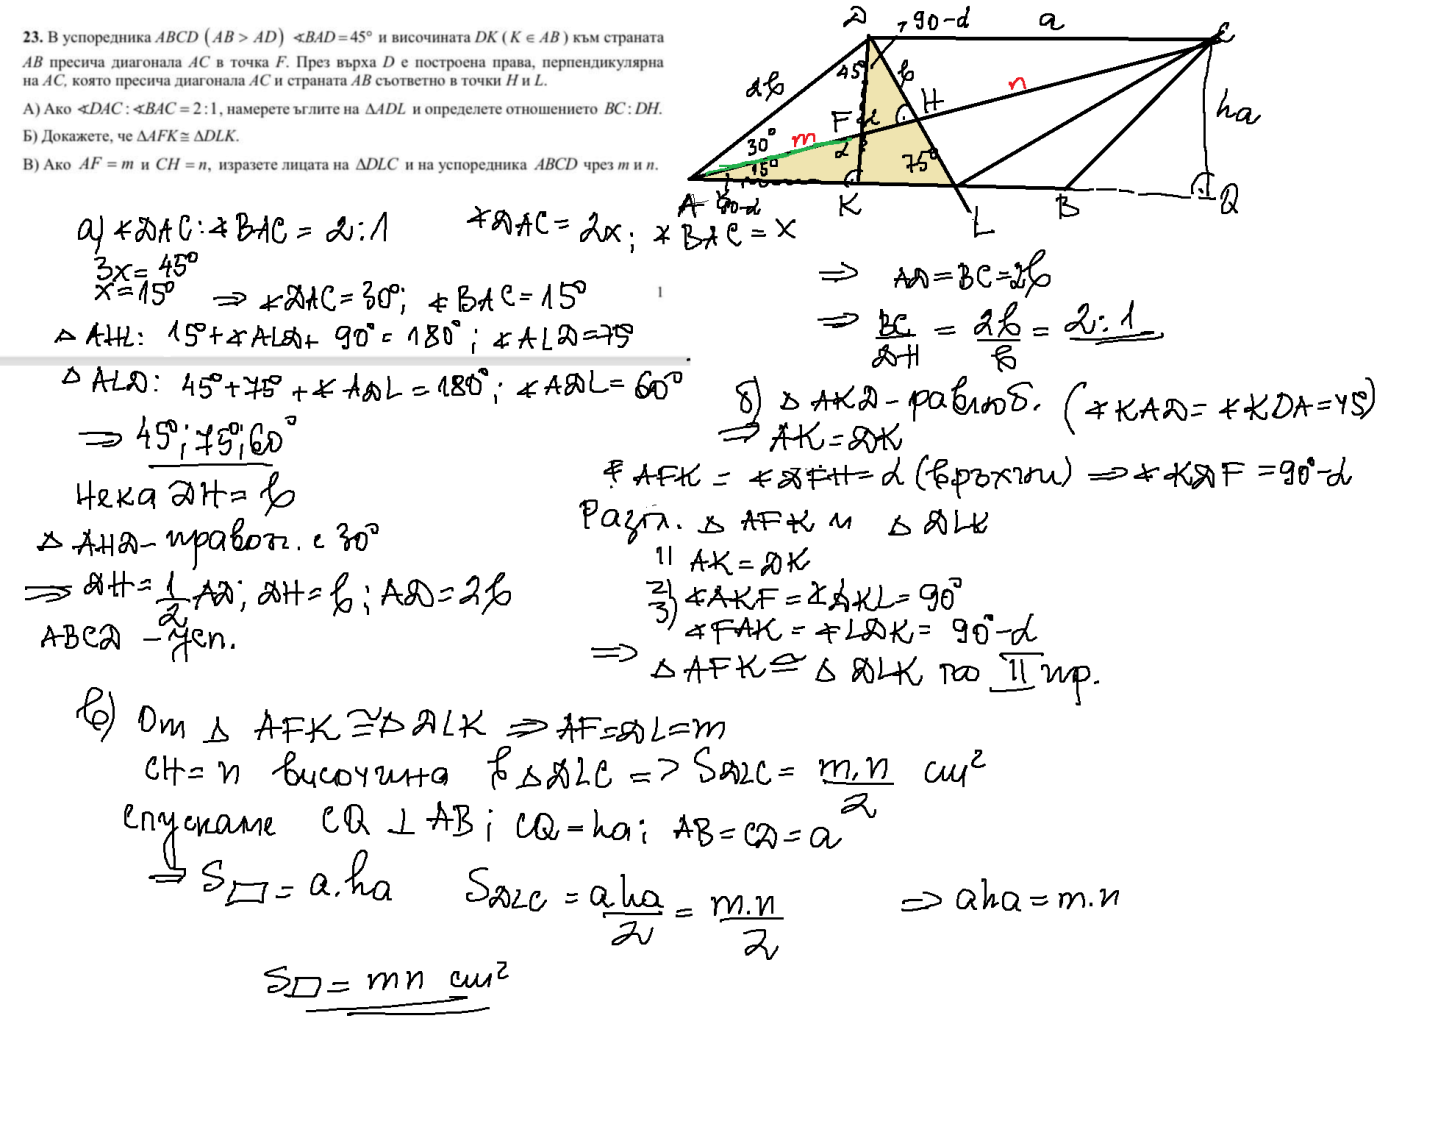 23. В успоредника ABCD (AB > AD) ∢BAD = 45° и височината DK (K ∈ AB) към страната
AB пресича диагонала AC в точка F. През върха D е построена права, перпендикулярна
на AC, която пресича диагонала AC и страната AB съответно в точки H и L.
А) Ако ∢DAC : ∢BAC = 2 : 1, намерете ъглите на ΔADL и определете отношението BC : DH.
Б) Докажете, че ΔAFK ≅ ΔDLK.
В) Ако AF = m и CH = n, изразете лицата на ΔDLC и на успоредника ABCD чрез m и n.
D 90-α a C
2b 45° b n ha
F α H
30° m α
15° 75°
A 90-α K L B Q
а) ∢DAC:∢BAC = 2:1 ∢DAC = 2x; ∢BAC = x
3x = 45°
x = 15° ⇒ ∢DAC = 30°; ∢BAC = 15°
1
Δ AHL: 15° + ∢ALD + 90° = 180°; ∢ALD = 75°
Δ ALD: 45° + 75° + ∢ADL = 180°; ∢ADL = 60°
⇒ 45°; 75°; 60°
Нека DH = b
Δ AHD - правоъг. с 30°
⇒ DH = 1/2 AD; DH = b; AD = 2b
ABCD - усп.
⇒ AD = BC = 2b
⇒ BC/DH = 2b/b = 2:1
б) Δ AKD - равноб. (∢KAD = ∢KDA = 45)
⇒ AK = DK
∢AFK = ∢DFH = α (връхни) ⇒ ∢KDF = 90°-α
Разгл. Δ AFK и Δ DLK
1) AK = DK
2) ∢AKF = ∢DKL = 90°
3) ∢FAK = ∢LDK = 90°-α
⇒ Δ AFK ≅ Δ DLK по II пр.
в) От Δ AFK ≅ Δ DLK ⇒ AF = DL = m
CH = n височина в Δ DLC => S DLC = m.n/2 cm²
Спускаме CQ ⊥ AB; CQ = ha; AB = CD = a
⇒ S▱ = a.ha S DLC = a ha/2 = m.n/2 ⇒ aha = m.n
S▱ = mn cm²